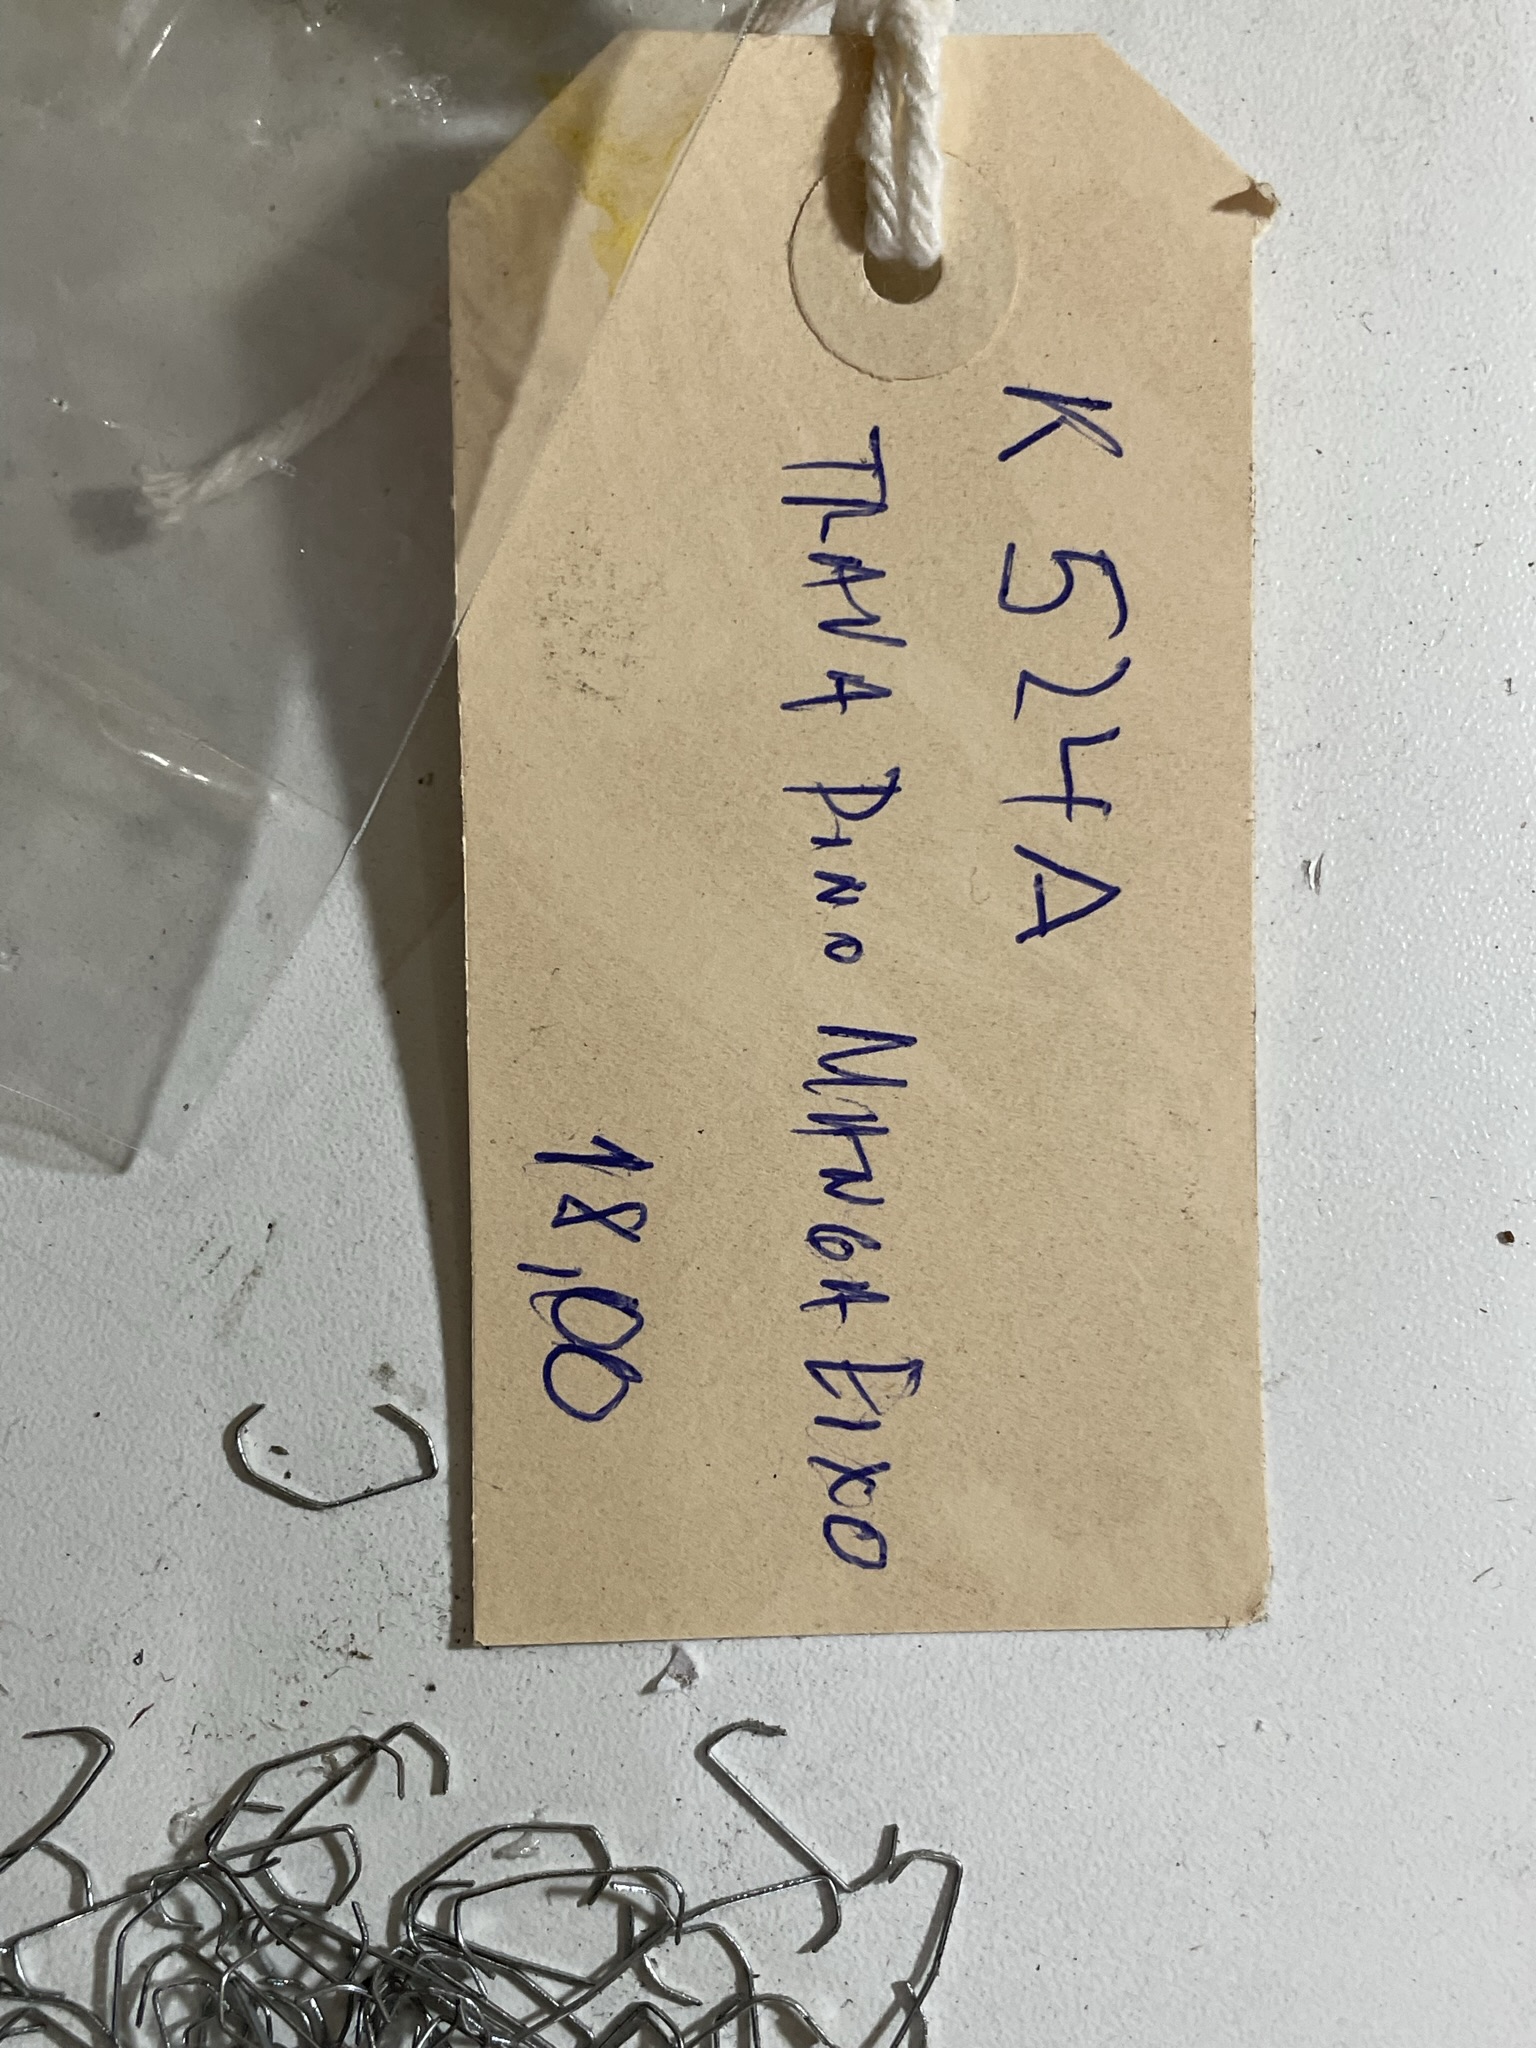 K 524A
TRAVA PINO MANGA EIXO
18,00